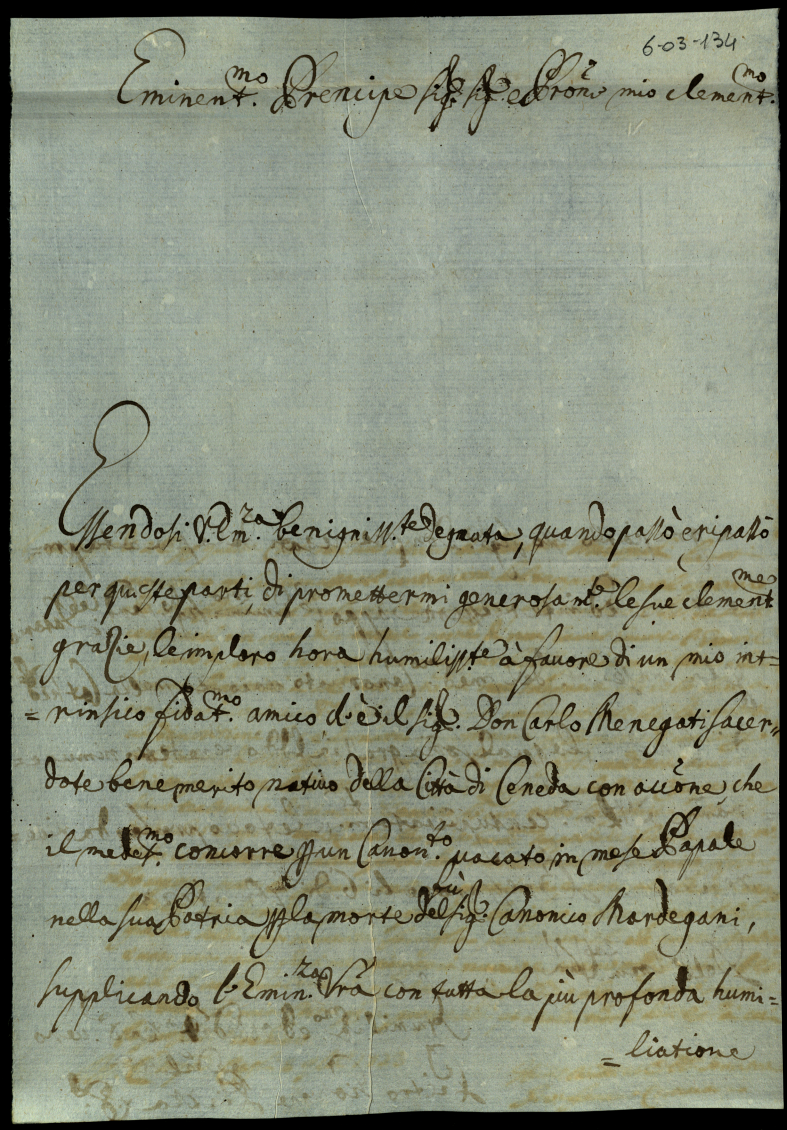 6-03-134
Eminent.mo Prencipe Sig.r Sig.r e Pron.e mio clement.mo
Essendosi V. Em.za benigniss.te degnata, quando passò e ripassò
per queste parti, di promettermi generosam.te le sue clement.me
grazie, le imploro hora humiliss.te à favore di un mio int=
=rinsico fidat.mo amico ch'è il Sig.r Don Carlo Menegati Sacer=
dote benemerito nativo della Città di Ceneda con acc.ne, che
il medet.mo concorre p un Canon.to vacato in mese Papale
nella sua Patria p la morte del fù Sig.r Canonico Mardegani,
supplicando l'Emin.za Vrã con tutta la più profonda humi=
=liatione